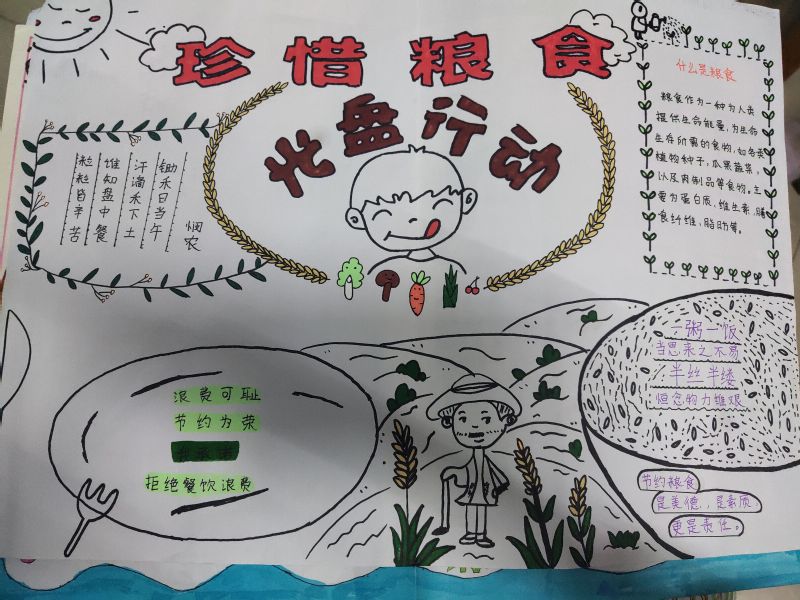 珍惜粮食
光盘行动
悯农
锄禾日当午
汗滴禾下土
谁知盘中餐
粒粒皆辛苦
什么是粮食
粮食作为一种为人类
提供生命能量,为生命
生存所需的食物,如各类
植物种子,瓜果蔬菜,
以及肉制品等食物。主
要为蛋白质,维生素,膳
食纤维,脂肪等。
浪费可耻
节约为荣
拒绝餐饮浪费
一粥一饭
当思来之不易
半丝半缕
恒念物力维艰
节约粮食
是美德,,是素质
更是责任。